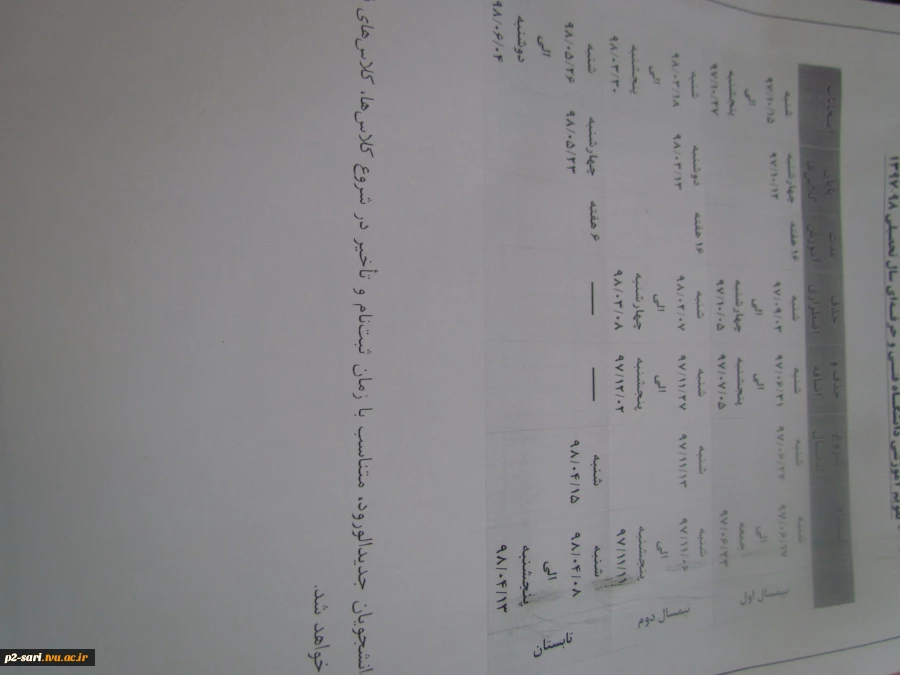 تقویم آموزشی دانشگاه فنی و حرفه‌ای سال تحصیلی ۹۸-۱۳۹۷
شروع حذف و اضافه حذف اضطراری مدت آموزش پایان امتحانات
نیمسال اول
شنبه ۹۷/۰۶/۱۷ الی جمعه ۹۷/۰۶/۲۳
شنبه
شنبه ۹۷/۰۶/۳۱ الی پنجشنبه ۹۷/۰۷/۰۵
شنبه ۹۷/۰۹/۰۳ الی چهارشنبه ۹۷/۱۰/۰۵
۱۶ هفته
چهارشنبه ۹۷/۱۰/۱۲
شنبه ۹۷/۱۰/۱۵ الی پنجشنبه ۹۷/۱۰/۲۷
نیمسال دوم
شنبه ۹۷/۱۱/۰۶ الی پنجشنبه ۹۷/۱۱/۱۱
شنبه ۹۷/۱۱/۱۳
شنبه ۹۷/۱۱/۲۷ الی پنجشنبه ۹۷/۱۲/۰۲
شنبه ۹۸/۰۲/۰۷ الی چهارشنبه ۹۸/۰۳/۰۸
۱۶ هفته
دوشنبه ۹۸/۰۳/۱۳
شنبه ۹۸/۰۳/۱۸ الی پنجشنبه ۹۸/۰۳/۳۰
تابستان
شنبه ۹۸/۰۴/۰۸ الی پنجشنبه ۹۸/۰۴/۱۳
شنبه ۹۸/۰۴/۱۵
——
——
۶ هفته
چهارشنبه ۹۸/۰۵/۲۳
شنبه ۹۸/۰۵/۲۶ الی دوشنبه ۹۸/۰۶/۰۴
انشجویان جدیدالورود، متناسب با زمان ثبت‌نام و تأخیر در شروع کلاس‌ها، کلاس‌های
خواهد شد.
p2-sari.tvu.ac.ir